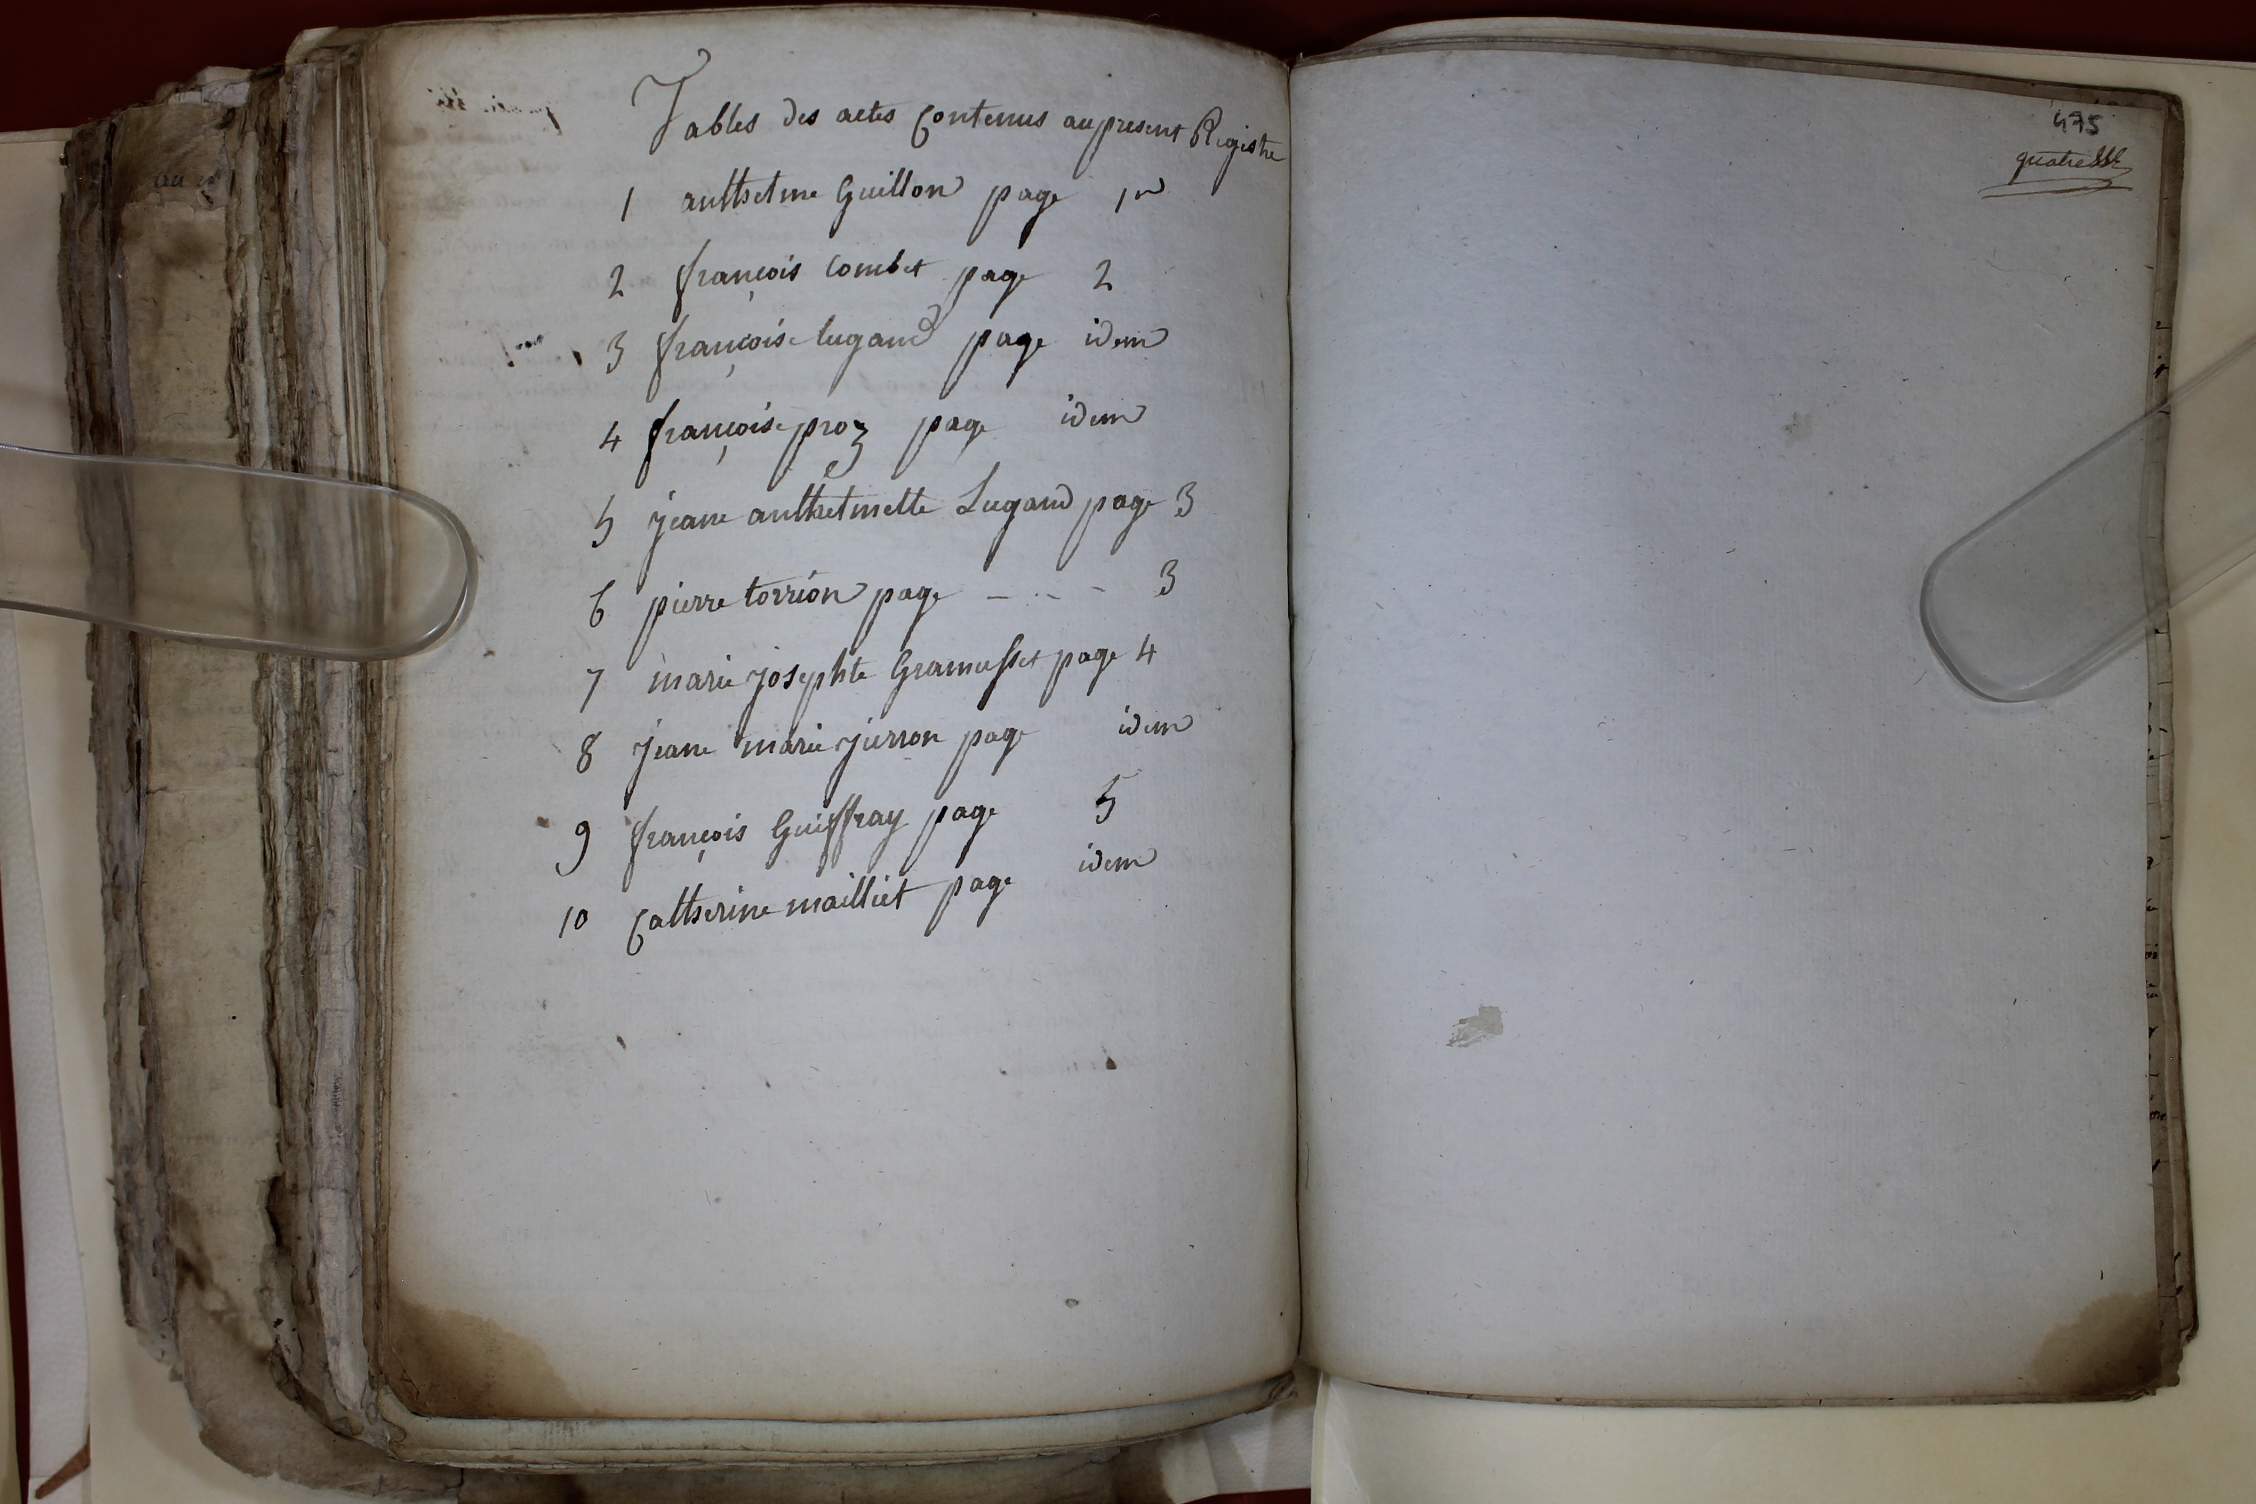 Tables des actes Contenus au present Registre
1 anthelme Guillon page 1re
2 françois Combet page 2
3 françoise lugand page idem
4 françoise proz page idem
5 jeane anthelmette Lugand page 3
6 pierre torrion page - - - 3
7 marie josephte Gramusset page 4
8 jeane marie jurron page idem
9 françois Guiffray page 5
10 Catherine mailliet page idem
475